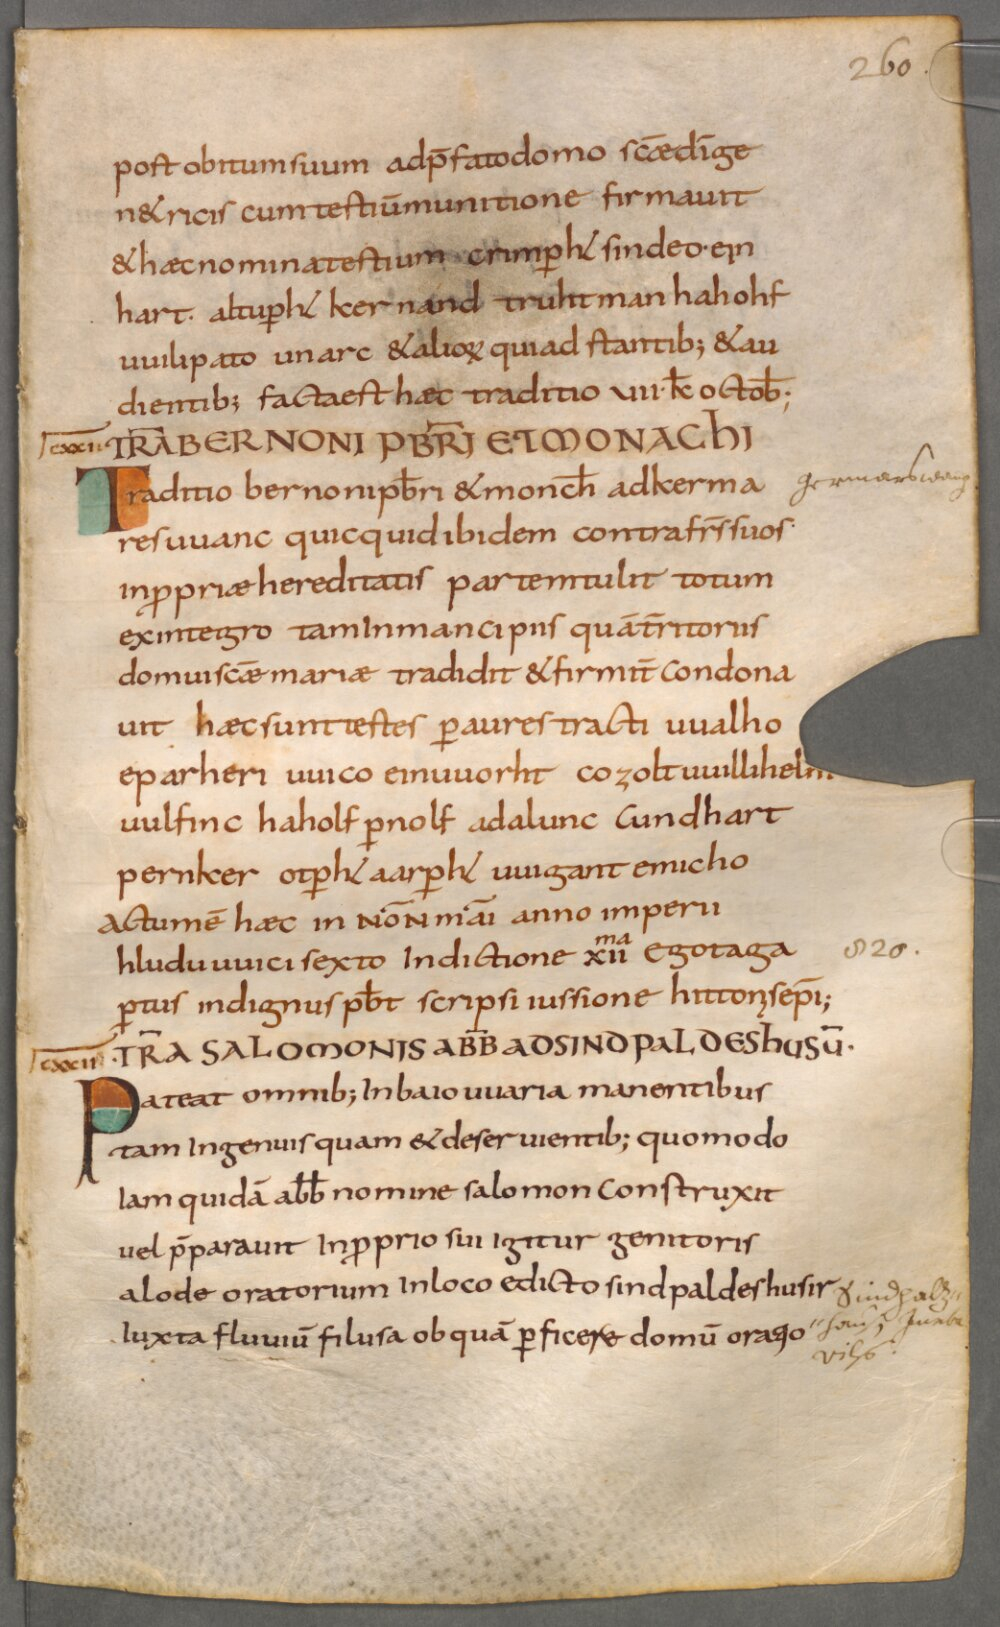 260.
post obitum suum adp̄fato domo scǣ dīge
n&ricis cum testiū munitione firmauit
& hæc nomina testium crimꝑh̄ sindeo. ein
hart. altuꝑh̄ kernand truhtman hahohf
uuilipato unarc & alioꝝ qui ad stantib; & au
dientib; facta est hæc traditio VII. kł octob̄;
cxxii TR̄A BERNONI PB̄RI ET MONACHI
Traditio bernoni pb̄ri & monch̄ ad kerma
germarswang
res uuanc quicquid ibidem contra fr̄s suos
in ꝓpriæ hereditatis partem tulit totum
ex integro tam In mancipiis quā t̄ritoriis
domui scǣ mariæ tradidit & firmit̄ condona
uit hæc sunt testes ꝑ aures tracti uualho
eparheri uuico einuuorht cozolt uuillihelm
uulfinc haholf ꝑnolf adalunc Cundhart
pernker otꝑh̄ aarꝑh̄ uuigant emicho
Actum ē hæc in NŌN māi anno imperii
hludu uuici sexto Indictione xii ma Ego taga
820.
ꝑtus indignus pb̄t scripsi iussione hittonis ep̄i;
cxxiii TR̄A SALOMONIS ABB̄ AD SINDPALDESHUSŪ.
Pateat omnib; In baiouuaria manentibus
tam Ingenuis quam & deseruientib; quomodo
Iam quidā abb̄ nomine salomon Construxit
uel p̄parauit In ꝓprio sui igitur genitoris
alode oratorium In loco edicto sindpaldeshusir
Iuxta fluuiū filusa ob quā ꝑficere domū oratio
vils